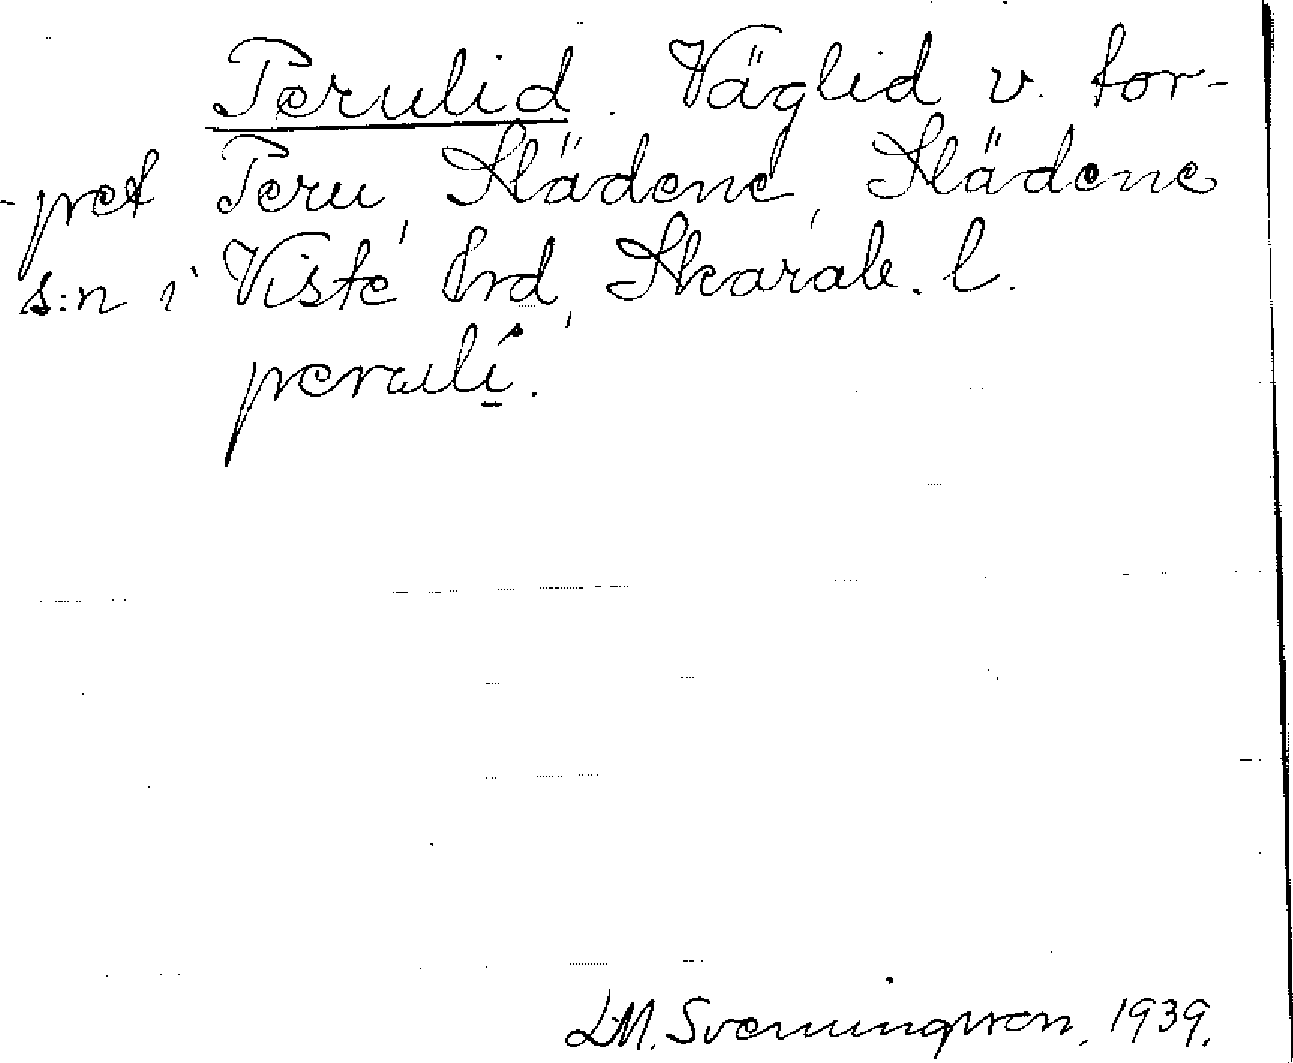 Perulid. Väglid v. tor-
-pet Peru, Slädene, Slädene
s:n i Viste hrd, Skarab. l.
perulí.
L.M. Svenungsson, 1939.